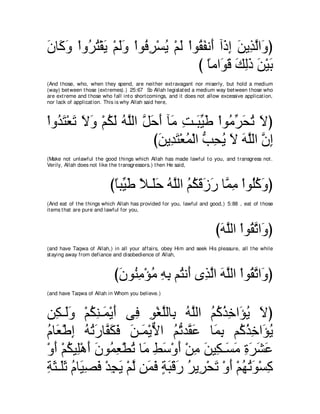 ﴿وَالَّذِينَ إِذَآ أَنفَقُواْ لَمْ يُسْرِفُواْ وَلَمْ يَقْتُرُواْ وَكَانَ
بَيْنَ ذَلِكَ قَوَاماً ﴾
(And those, who, when they spend, are neither extravagant nor miserly, but hold a medium
(way) between those (extremes).) 25:67 So Allah legislated a medium way between those who
are extreme and those who fall into shortcomings, and it does not allow excessive application,
nor lack of application. This is why Allah said here,
﴿لاَ تُحَرِّمُواْ طَيِّبَـتِ مَآ أَحَلَّ اللَّهُ لَكُمْ وَلاَ تَعْتَدُواْ
إِنَّ اللَّهَ لاَ يُحِبُّ الْمُعْتَدِينَ﴾
(Make not unlawful the good things which Allah has made lawful to you, and transgress not.
Verily, Allah does not like the transgressors.) then He said,
﴿وَكُلُواْ مِمَّا رَزَقَكُمُ اللَّهُ حَلَـلاً طَيِّباً﴾
(And eat of the things which Allah has provided for you, lawful and good.) 5:88 , eat of those
items that are pure and lawful for you,
﴿وَاتَّقُواْ اللَّهَ﴾
(and have Taqwa of Allah,) in all your affairs, obey Him and seek His pleasure, all the while
staying away from defiance and disobedience of Allah,
﴿وَاتَّقُواْ اللَّهَ الَّذِى أَنتُم بِهِ مُؤْمِنُونَ﴾
(and have Taqwa of Allah in Whom you believe.)
﴿لاَ يُؤَاخِذُكُمُ اللَّهُ بِاللَّغْوِ فِى أَيْمَـنِكُمْ وَلَـكِن
يُؤَاخِذُكُم بِمَا عَقَّدتُّمُ الاٌّيْمَـنَ فَكَفَّارَتُهُ إِطْعَامُ
عَشَرَةِ مَسَـكِينَ مِنْ أَوْسَطِ مَا تُطْعِمُونَ أَهْلِيكُمْ أَوْ
كِسْوَتُهُمْ أَوْ تَحْرِيرُ رَقَبَةٍ فَمَن لَّمْ يَجِدْ فَصِيَامُ ثَلَـثَةِ